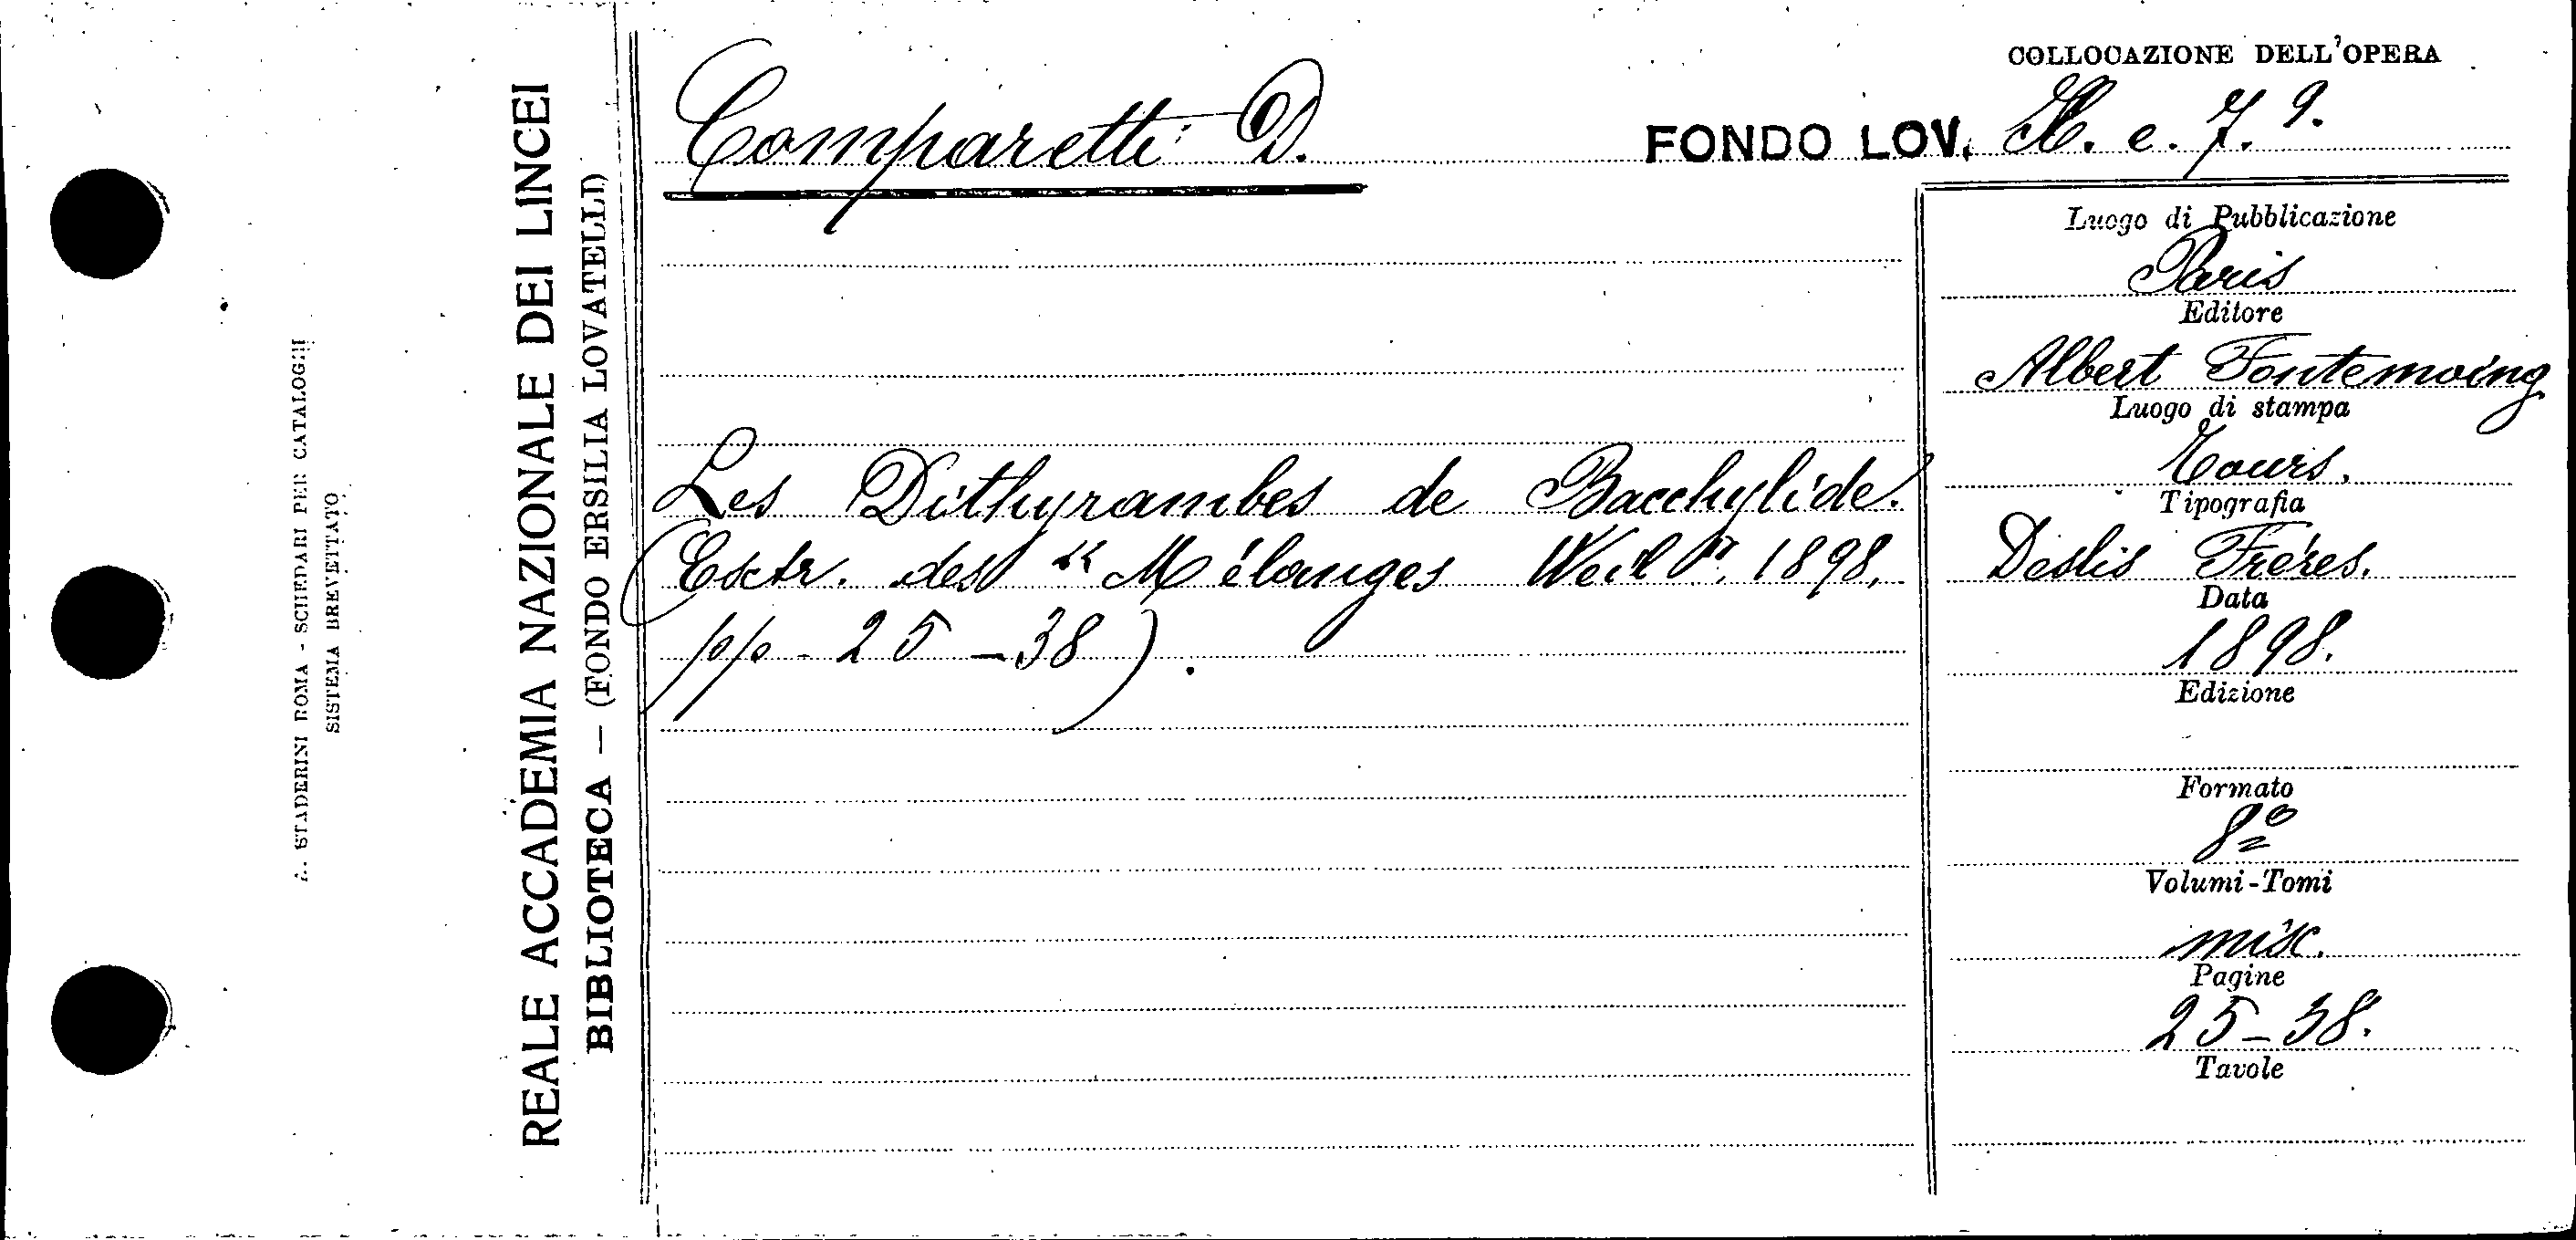 COLLOCAZIONE DELL'OPERA
Comparetti D.
FONDO LOV. H. e. 7. 9.
Les Dithyrambes de Bacchylide.
(Extr. des " Mélanges Weil ". 1898.
pp. 25-38).
Luogo di Pubblicazione
Paris
Editore
Albert Fontemoing
Luogo di stampa
Tours.
Tipografia
Deslis Frères.
Data
1898.
Edizione
Formato
8º
Volumi-Tomi
misc.
Pagine
25-38.
Tavole
REALE ACCADEMIA NAZIONALE DEI LINCEI
BIBLIOTECA — (FONDO ERSILIA LOVATELLI)
A. STADERINI ROMA - SCHEDARI PER CATALOGHI
SISTEMA BREVETTATO